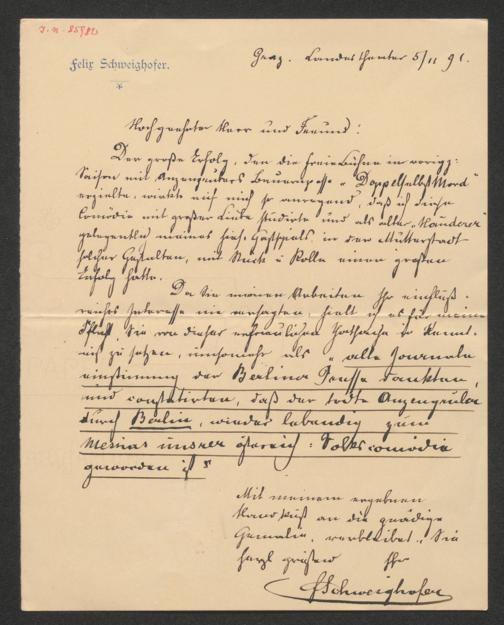 J. N. 85982
Felix Schweighofer.
Graz. Landestheater 5/11 91.
Hochgeehrter Herr und Freund!
Der große Erfolg, den die freie Bühne in voriger
Saison mit Anzengrubers Bauernposse „Doppelselbstmord"
erzielte, wirkte auf mich so anregend, daß ich diese
Comödie mit großer Liebe studirte und als alter „Hauderer"
gelegentlich meines hies. Gastspiels in der Mutterstadt
solcher Gestalten, mit Stück u Rolle einen großen
Erfolg hatte.
Da Sie meinen Arbeiten Ihr einfluß-
reiches Interesse nie versagten, hielt ich es für meine
Pflicht, Sie von dieser erfreulichen Thatsache in Kennt-
niß zu setzen, umsomehr als „alle Journale
einstimmig der Berliner Presse dankten,
und constatirten, daß der todte Anzengruber
durch Berlin, wieder lebendig zum
Messias unsrer österreich: Volkscomödie
geworden ist"
Mit meinem ergebnen
Handkuß an die gnädige
Gemalin, verbleibet, Sie
herzl grüßend Ihr
FSchweighofer